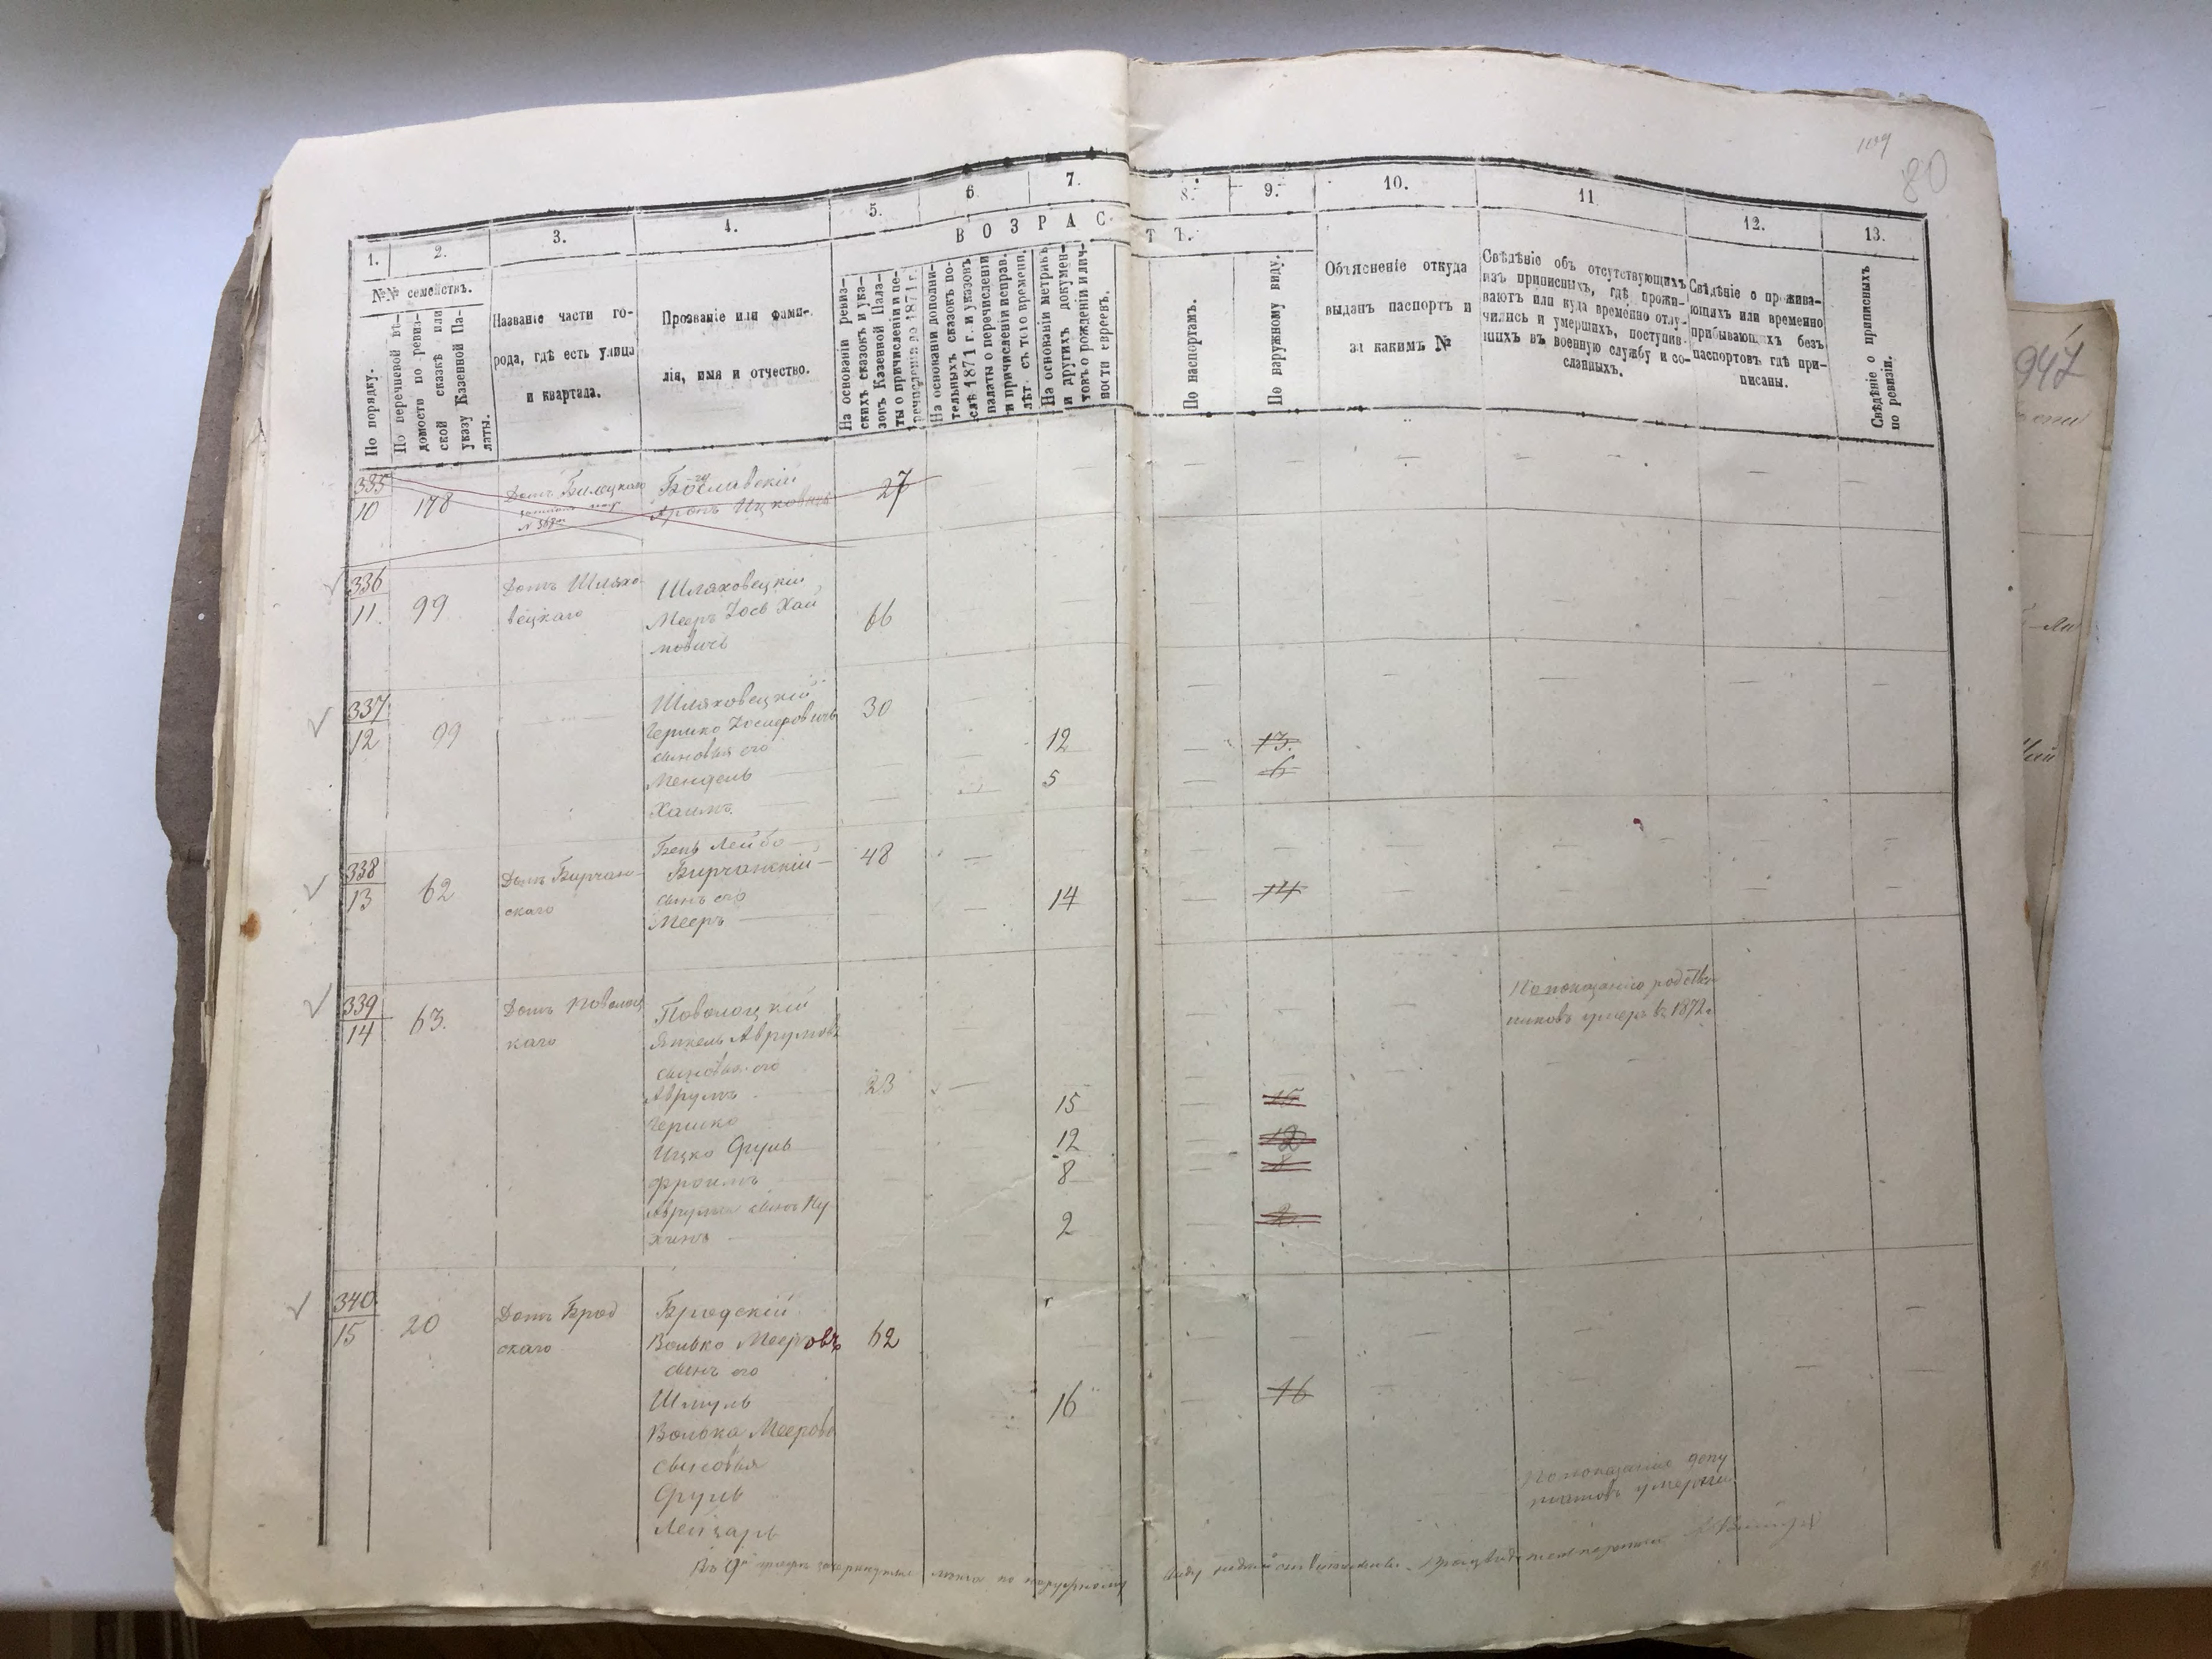 109
80
1.
2.
3.
4.
5.
6
7.
8.
9.
10.
11.
12.
13.
В О З Р А С
Т Ъ.
№№ семействъ.
По порядку.
По перечневой вѣ-
домости по ревиз-
ской сказкѣ или
указу Казенной Па-
латы.
Названіе части го-
рода, гдѣ есть улица
и квартала.
Прозваніе или фами-
лія, имя и отчество.
На основаніи ревиз-
скихъ сказокъ и ука-
зовъ Казенной Пала-
ты о причисленіи и пе-
речисленіи до 1871 г.
На основаніи дополни-
тельныхъ сказокъ по-
слѣ 1871 г. и указовъ
палаты о перечисленіи
и причисленіи исправ.
лѣт. съ того времени.
На основаніи метрикъ
и другихъ докумен-
товъ о рожденіи и лич-
ности евреевъ.
По паспортамъ.
По наружному виду.
Объясненіе откуда
выданъ паспортъ и
за какимъ №
Свѣдѣніе объ отсутствующихъ
изъ приписныхъ, гдѣ прожи-
ваютъ или куда временно отлу-
чились и умершихъ, поступив-
шихъ въ военную службу и со-
сланныхъ.
Свѣдѣніе о прожива-
ющихъ или временно
прибывающихъ безъ
паспортовъ гдѣ при-
писаны.
Свѣдѣніе о приписныхъ
по ревизіи.
947
335
10
178
Домъ Билецкаго
27
Аронъ Ицковичъ
336
11.
99
Домъ Шляхо-
вецкаго
Шляховецкій
Мееръ Іось Хаи
мовичъ
66
337
12
99
Шляховецкій
30
сыновья его
Мендель
12
13.
Хаимъ
5
6
338
13
62
Домъ Бирчан-
скаго
Бень Лейба
Бирчанскій
48
сынъ его
Мееръ
14
14
339
14
63.
Домъ Поволоц
каго
Поволоцкій
Янкель Аврумовъ
По показанію родствен
никовъ умеръ въ 1872 г.
сыновья его
Аврумъ
23
Гершко
15
15
Ицко Сруль
12
12
Фроимъ
8
8
Аврума сынъ Ну
химъ
2
2
340
15
20
Домъ Брод
скаго
Бродскій
Волько Мееровъ
62
сынъ его
Шмуль
16
16
Волька Меерова
сыновья
Сруль
Лейзаръ
По показанію депу
татовъ умерли